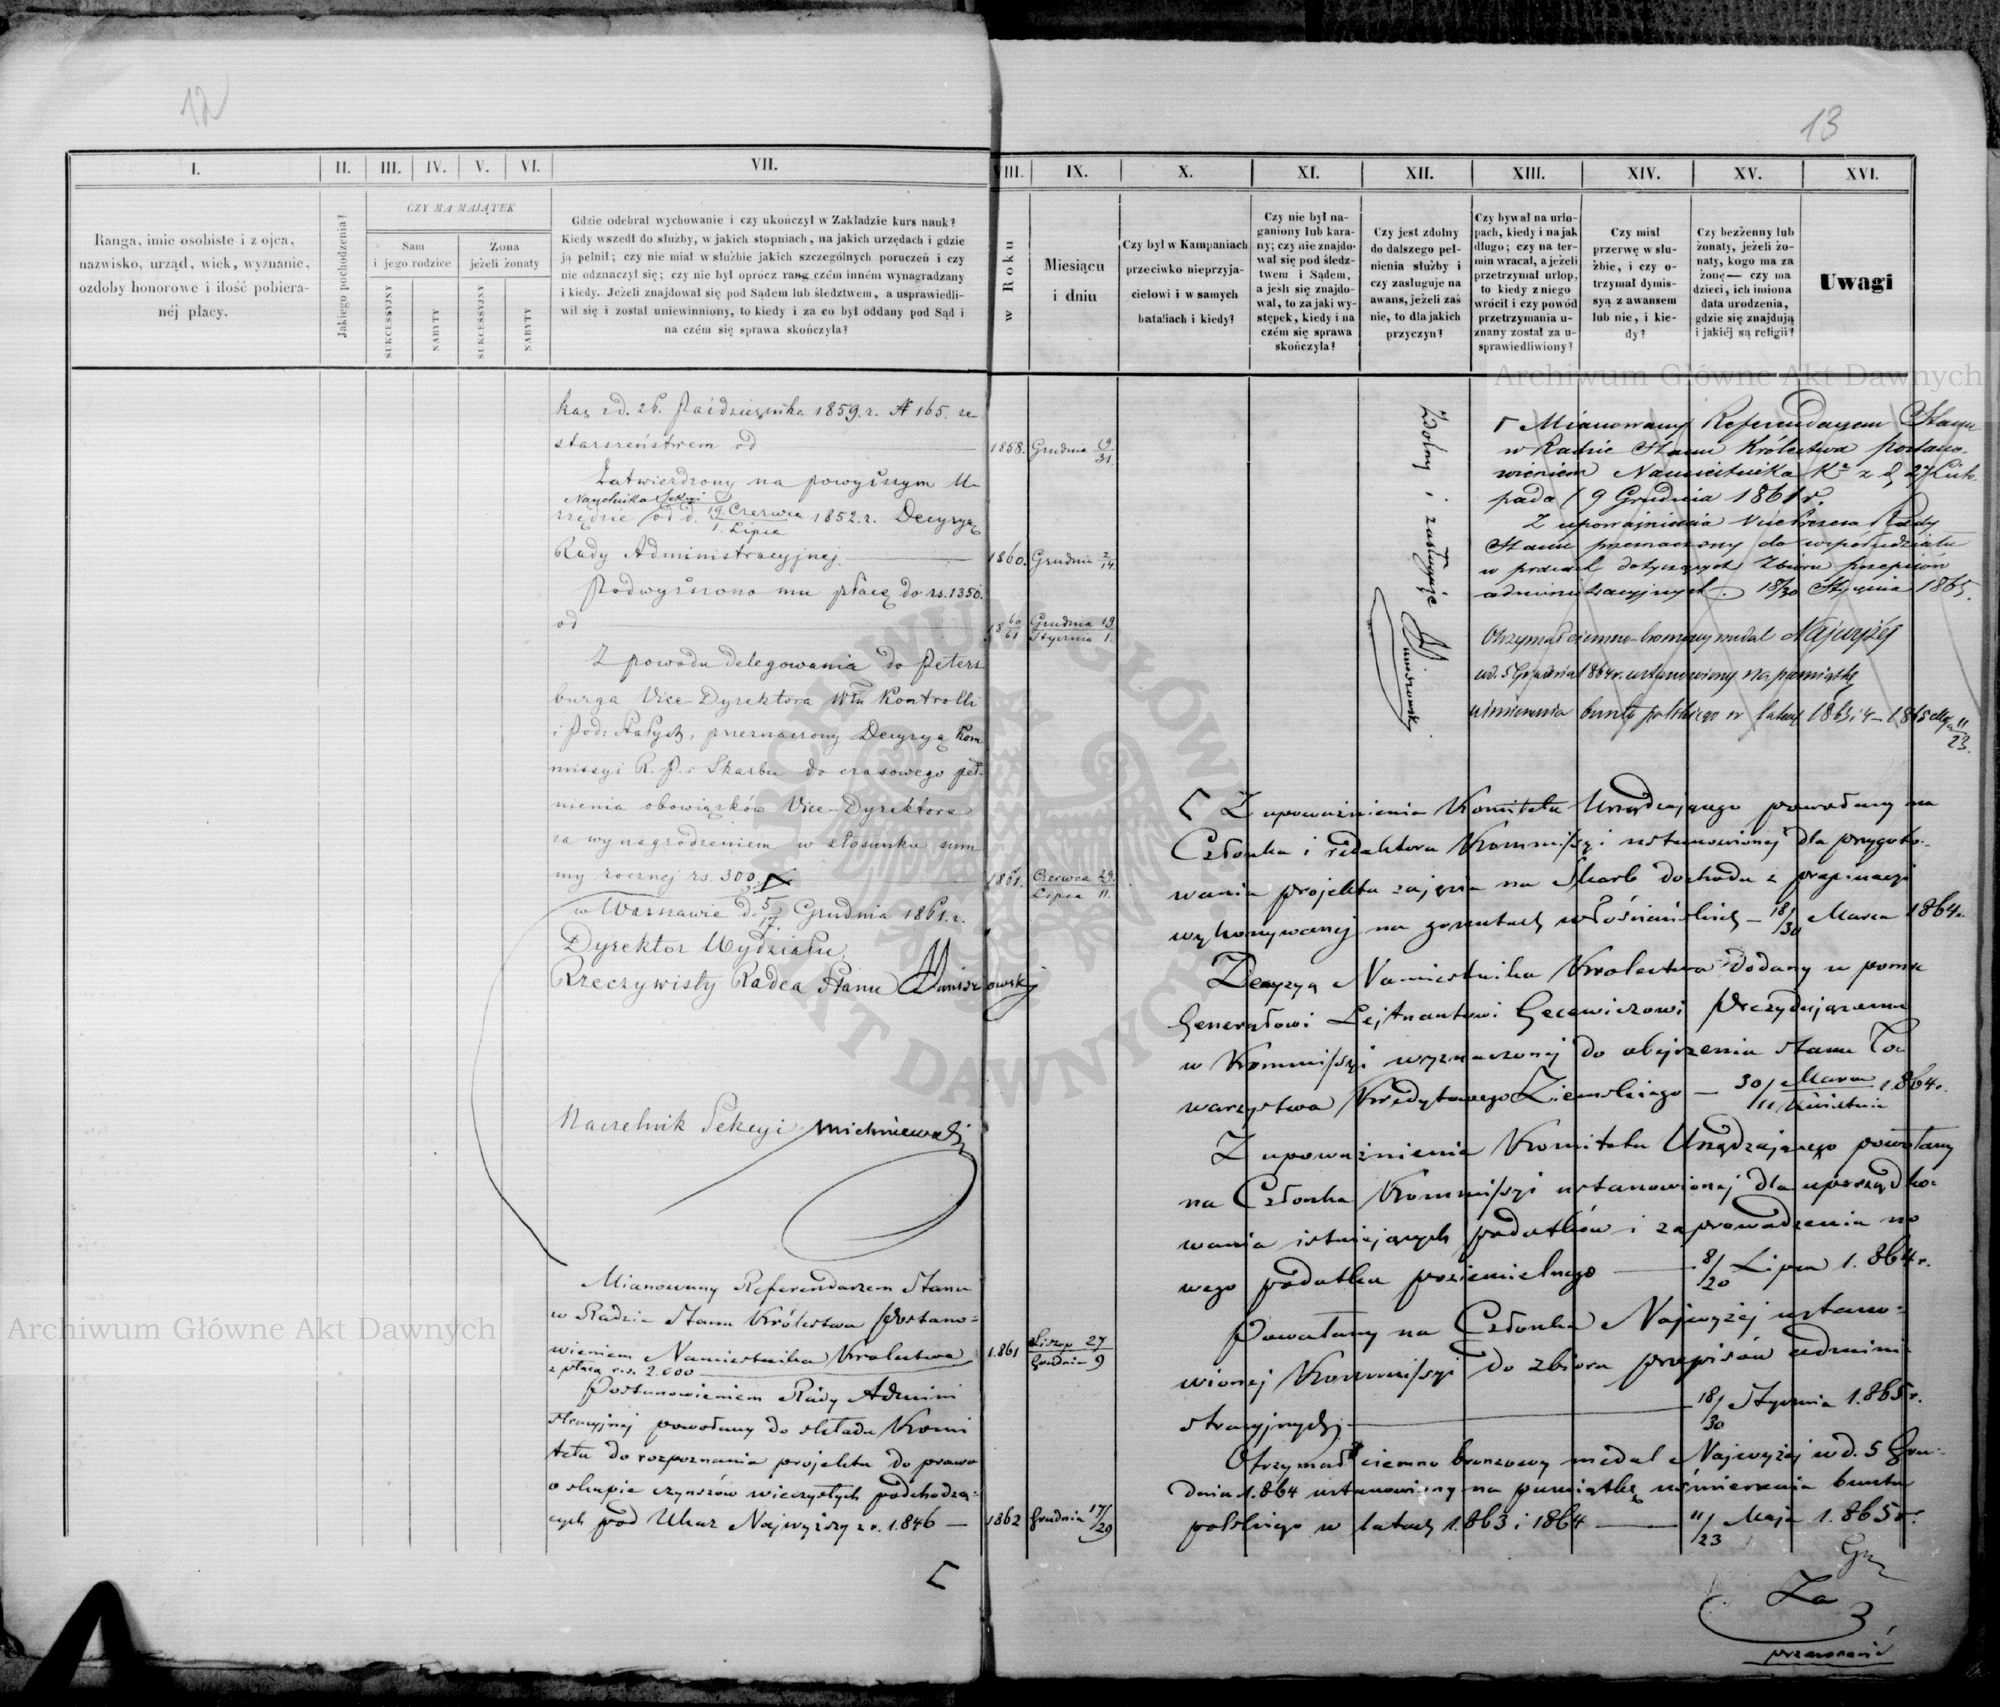 12
I.
II.
III.
IV.
V.
VI.
VII.
Ranga, imie osobiste i z ojca,
nazwisko, urząd, wiek, wyznanie,
ozdoby honorowe i ilość pobiera-
néj płacy.
Jakiego pochodzenia?
CZY MA MAJĄTEK
Sam
i jego rodzice
Żona
jeżeli żonaty
SUKCESSYJNY
NABYTY
SUKCESSYJNY
NABYTY
Gdzie odebrał wychowanie i czy ukończył w Zakładzie kurs nauk?
Kiedy wszedł do służby, w jakich stopniach, na jakich urzędach i gdzie
ją pełnił; czy nie miał w służbie jakich szczególnych poruczeń i czy
nie odznaczył się; czy nie był oprócz rang czém inném wynagradzany
i kiedy. Jeżeli znajdował się pod Sądem lub śledztwem, a usprawiedli-
wił się i został uniewinniony, to kiedy i za co był oddany pod Sąd i
na czém się sprawa skończyła?
kaz z d. 26. Października 1859. r. № 165. ze
starszeństwem od
Zatwierdzony na powyższym U-
Naczelnika Sekcyi
rzędzie od d. 19. Czerwca / 1. Lipca 1852. r. Decyzyą
Rady Administracyjnej
Podwyższono mu płacę do rs. 1350.
od
Z powodu delegowania do Peters
burga Vice-Dyrektora Włu Kontrolli
i Pod: Stałych, przeznaczony Decyzyą Kom
missyi R. P. i Skarbu do czasowego peł-
nienia obowiązków Vice-Dyrektora
za wynagrodzeniem w stosunku sum
my rocznej rs. 300.
w Warszawie d. 5/17. Grudnia 1861. r.
Dyrektor Wydziału,
Rzeczywisty Radca Stanu
Naczelnik Sekcyi Michniewski
Mianowany Referendarzem Stanu
w Radzie Stanu Królestwa Postano-
wieniem Namiestnika Królestwa
z płacą r.s. 2.000
Postanowieniem Rady Admini
stracyjnej powołany do składu Komi
tetu do rozpoznania projektu do prawa
o skupie czynszów wieczystych podchodzą-
cych pod Ukaz Najwyższy z r. 1846 —
13
VIII.
IX.
X.
XI.
XII.
XIII.
XIV.
XV.
XVI.
w Roku
Miesiącu
i dniu
Czy był w Kampaniach
przeciwko nieprzyja-
cielowi i w samych
bataliach i kiedy?
Czy nie był na-
ganiony lub kara-
ny; czy nie znajdo-
wał się pod śledz-
twem i Sądem,
a jeśli się znajdo-
wał, to za jaki wy-
stępek, kiedy i na
czém się sprawa
skończyła?
Czy jest zdolny
do dalszego peł-
nienia służby i
czy zasługuje na
awans, jeżeli zaś
nie, to dla jakich
przyczyn?
Czy bywał na urlo-
pach, kiedy i na jak
długo; czy na ter-
min wracał, a jeżeli
przetrzymał urlop,
to kiedy z niego
wrócił i czy powód
przetrzymania u-
znany został za u-
sprawiedliwiony?
Czy miał
przerwę w słu-
żbie, i czy o-
trzymał dymis-
syą z awansem
lub nie, i kie-
dy?
Czy bezżenny lub
żonaty, jeżeli żo-
naty, kogo ma za
żonę — czy ma
dzieci, ich imiona
data urodzenia,
gdzie się znajdują
i jakiéj są religii?
Uwagi
1858. Grudnia 19/31.
1860. Grudnia 2/14.
18 60/61 Grudnia 19 / Stycznia 1.
1861. Czerwca 29. / Lipca 11.
1.861 Listop 27 / Grudnia 9
1862 Grudnia 17/29
Zdolny i zasługuje
Mianowany Referendarzem Stanu
w Radzie Stanu Królestwa postano-
wieniem Namiestnika Kr z d. 27 List-
pada / 9 Grudnia 1861 r.
Z upoważnienia Vice Prezesa Rady
Stanu przeznaczony do współudziału
w pracach dotyczących Zbioru przepisów
administracyjnych. 18/30 Stycznia 1865.
Otrzymał ciemno-bronzowy medal Najwyżej
w d. 5 Grudnia 1864 r. ustanowiony na pamiątkę
uśmierzenia buntu polskiego w latach 1863 i 4 — 1865 Maja 11/23.
Z upoważnienia Komitetu Urządzającego powołany na
Członka i redaktora Kommissyi ustanowionej dla przygoto-
wania projektu zajęcia na Skarb dochodu z propinacyi
wykonywanej na gruntach włościańskich — 18/30 Marca 1864 r.
Decyzyą Namiestnika Królestwa dodany w pomoc
Generałowi Lejtnantowi Gecewiczowi Prezydującemu
w Kommissyi wyznaczonej do obejrzenia stanu To-
warzystwa Kredytowego Ziemskiego — 30/11 Marca / Kwietnia 1.864 r.
Z upoważnienia Komitetu Urządzającego powołany
na Członka Kommissyi ustanowionej dla uporządko-
wania istniejących podatków i zaprowadzenia no
wego podatku poziemielnego — 8/20 Lipca 1.864 r.
Powołany na Członka Najwyżej ustano-
wionej Kommissyi do zbioru przepisów admini-
stracyjnych — 18/30 Stycznia 1.865 r.
Otrzymał ciemno bronzowy medal Najwyżej w d. 5 Gru-
dnia 1.864 ustanowiony na pamiątkę uśmierzenia buntu
polskiego w latach 1.863 i 1864 — 11/23 Maja 1.865 r.
Za
Archiwum Główne Akt Dawnych
Archiwum Główne Akt Dawnych
ARCHIWUM GŁÓWNE AKT DAWNYCH